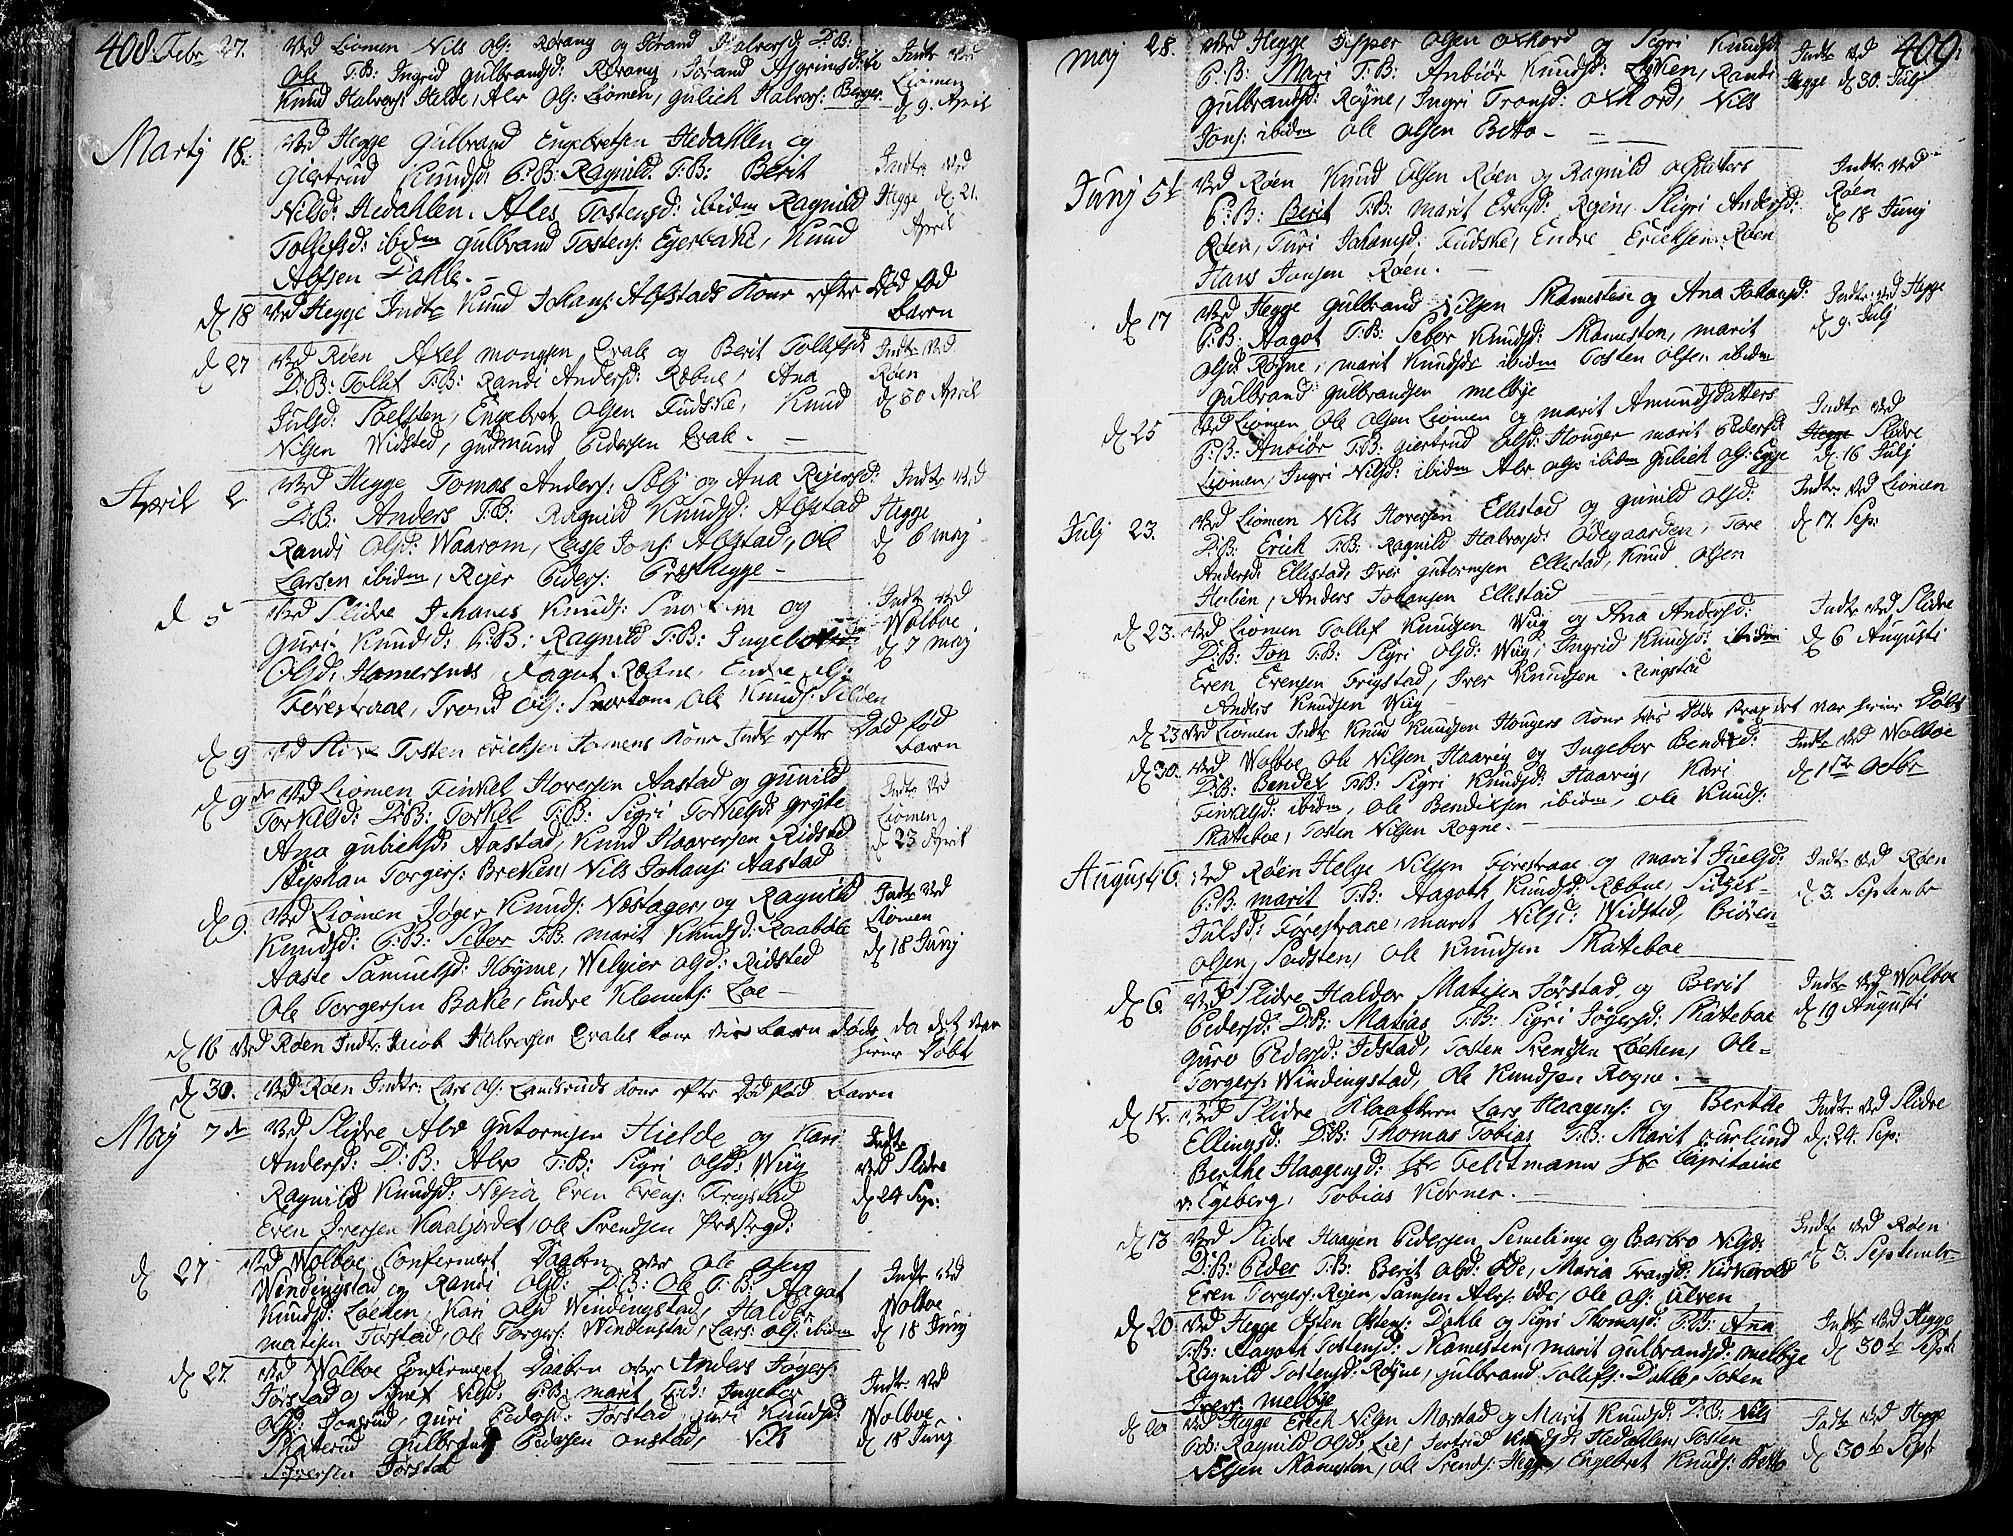 408. Febr 27. Ved Liomen Nils Ols: Rørang og Jørand Halvorsd: D:B:
Ole T:B: Ingrid Gulbrandsd: Rørang, Jørand Asgrimsd: ibi
Knud Halvors: Helde, Alv Ols: Liomen, Gulich Halvors: Berger
Indt: ved
Liomen
d 9. April
Martij 18. Ved Hegge Gulbrand Engebretsen Hedahlen og
Giertrud Knudsd: P:B: Ragnild. T:B: Berit
Nilsd: Hedahlen. Ales Tostensd: ibidm Ragnild
Tollefsd: ibidm Gulbrand Tostens: Egerbake, Knud
Alfsen Dahle.
Indt: ved
Hegge d. 21.
April
d 18 Ved Hegge Indt: Knud Johans: Alfstads Kone efter Død fød
barn
d 27 Ved Røen Axel Monssen Qvale og Berit Tollefsd:
D:B: Tollef T:B: Randi Andersd: Robne, Ana
Julsd: Selsten, Engebret Olsen Fudske, Knud
Nilsen Widsted, Gudmund Pedersen Qvale.
Indt: ved
Røen
d 30 April
April 2. Ved Hegge Tomas Anders: Selj og Ana Reiersd:
D:B: Anders T:B: Ragnild Knudsd: Alfstad
Randi Olsd: Waarom, Lasse Jons: Alfstad, Ole
Larsen ibidm, Reier Peders: Præsthegge
Indt: ved
Hegge
d 6 Maj
d 5 Ved Slidre Johanes Knuds: og
Guri Knudsd: P:B: Ragnild T:B: Ingebor
Olsd: Hamersnes, Aagot Robne, Endre Ols:
Førestraae, Trond Ols: Snortom, Ole Knuds:
Indt: ved
Wolboe
d 7 Maj
d 9 Ved Slidre Tosten Erichsen Jomens Kone Indt: efter Død fød
barn
d 9de Ved Liomen Finkel Hoversen Aastad og Gunild
Torkilsd: D:B: Torkel T:B: Sigri Torkelsd: Gryte
Ana Gulichsd: Aastad, Knud Haaversen Ridsted
Stephan Torgers: Breken, Nils Johans: Aastad
Indt: ved
Liomen
d 23 April
d 9. Ved Liomen Jøger Knuds: Nøstager og Ragnild
Knudsd: P:B: Sebor T:B. Marit Knudsd: Raabøle
Aaste Samuelsd: Høyme, Welgier Olsd: Ridsted
Ole Torgersen Bake, Endre Klemets: Loe
Indt: ved
Liomen
d 18 Junj
d 16 Ved Røen Indt: Jacob Halvorsen Qvales Kone barn døde da det var
hieme Døbt
d 30. Ved Røen Indt: Lars Ols: Landsruds Kone efter Død fød barn
Maj 7de Ved Slidre Alv Gutormsen Hielde og Kari
Andersd: D:B: Alv T:B: Sigri Olsd: Wiig
Ragnild Knudsd: Nesia Even Evens: Frigstad
Even Iversen Kaaljordet, Ole Svendsen Præstegd:
Indt:
ved Slidre
d 24 Sep:
d 27 Ved Wolboe Confirmert Daaben over Ole Olsen
Windingstad og Randi Olsd: D:B: Ole T:B: Aagot
Knudsd: Løcken, Kari Olsd Windingstad, Haldor
Matisen Førstad, Ole Torgers: Windinstad, Lars: Ols: ibidm
Indt: ved
Wolboe
d 18 Junj
d 27. Ved Wolboe Confirmeret Daaben over Anders Jøgers:
Førstad og Sønef Nilsd: P:B: Marit T:B: Ingebor
Olsd: Jongrud, Guri Pedersd: Førstad, Guri Knudsd:
Skaterud Gulbrand Pedersen Onstad, Nils
Iversen Førstad
Indt: ved
Wolboe
d 18 Junj
409.
Maj 28. Ved Hegge Jesper Olsen Oxhord og Sigri Knudsd:
P:B: Mari T:B: Anbiør Knudsd: Lyken, Randi
Gulbrandsd: Røyne, Ingri Tronsd: Oxhord, Nils
Jons: ibidm Ole Olsen Betto
Indt: ved
Hegge d 30. Julj
Junj 5te Ved Røen Knud Olsen Røen og Ragnild Olsdaters
P:B: Berit T:B: Marit Evensd: Reien, Sigri Andersd:
Røen, Turi Johansd: Fudske, Endre Ericksen Røen
Hans Jonsen Røen.
Indt: ved
Røen
d 18 Junj
d 17 Ved Hegge Gulbrand Nilsen Skamesten og Ana Johansd:
P:B: Aagot T:B: Sebor Knudsd: Skamesten, Marit
Olsd: Røyne, Marit Knudsd: ibidem Tosten Olsen ibidm
Gulbrand Gulbrandsen Melbye
Indt: ved Hegge
d 9. Julj
d 25 Ved Liomen Ole Olsen Liomen og Marit Amundsdatters
P:B: Anbiør T:B: Giertrud Olsd: Houger Marit Pedersd:
Liomen, Ingri Nilsd: ibidm Alv Ols: ibidm Gulich Ols: Egge
Indt: ved
Hegge Slidre
d. 16 Julj
Julj 23. Ved Liomen Nils Hoversen Ellestad og Gunild Olsd:
D:B: Erich T:B: Ragnild Halvorsd: Ødegaarden, Tore
Andersd: Ellestad, Iver Gutormsen Ellestad, Knud Olsen
Holien, Anders Johansen Ellestad
Indt: ved Liomen
d 17. Sep:
d 23. Ved Liomen Tollef Knudsen Wiig og Ana Andersd:
D:B: Jon T:B: Sigri Olsd: Wiig, Ingrid Knudsd: ibidm
Even Evensen Frigstad, Iver Knudsen Ringstad
Anders Knudsen Wiig
Indt: ved Slidre
d 6 Augusti
d 23 Ved Liomen Indt: Knud Knudsen Hougers Kone det var hieme Døbt
d 30. Ved Wolboe Ole Nilsen Haavig og Ingebor Bendixd:
D:B: Bendix T:B: Sigri Knudsd: Haavig, Kari
Finkelsd: ibidm, Ole Bendixsen ibidm, Ole Knuds:
Skatteboe, Tosten Nilsen Rogne.
Indt: ved Wolboe
d 1ste Octbr
Augusti 6. Ved Røen Helge Nilsen Førestraae og Marit Juelsd:
P:B: Marit T:B: Aagoth Knudsd: Robne, Sidzel
Julsd: Førestraae, Marit Nilsd: Widsted, Biören
Olsen, Sadsten, Ole Knudsen Skatteboe
Indt: ved Røen
d 3. Septembr
d 6. Ved Slidre Haldor Matisen Førstad, og Berit
Pedersd: D:B: Matias T:B: Sigri Jøgersd: Skatteboe
Guro Pedersd: Idstad, Tosten Svendsen Løcken, Ole
Torgers: Windingstad, Ole Knudsen Rogne.
Indt: ved Wolboe
d 19 Augusti
d 12. Ved Slidre Klokkeren Lars Haagens: og Berthe
Ellingsd: D:B: Thomas Tobias T:B: Marit Curlund
Berthe Haagensd: Hr Feltmann Hr Capitaine
v: Egeberg, Tobias Körner.
Indt: ved Slidre
d: 24. Sep:
d 13 Ved Slidre Haagen Pedersen Semelinge og Barbro Nilsd:
D:B: Peder T:B: Berit Olsd: Øde, Maria Fransd: Kirkevold
Even Torgers: Reien, Samsen Alvs: Øde, Ole Ols: Ulven
Indt: ved Røen
d 3. Septembr
d 20 Ved Hegge Østen Østens: Dahle og Sigri Thomasd: P:B: Anna
T:B: Aagoth Tostensd: Skamesten, Marit Gulbrandsd: Melbye
Ragnild Tostensd: Røyne, Gulbrand Tollefs: Dahle, Tosten
Ivers: Melbye
Indt: ved Hegge
d 30te Sept:
d 20 Ved Hegge Erich Nilsen Morstad og Marit Knudsd: D:B: Nils
T:B: Ragnild Olsd: Lie, Jertrud Knudsd: Hedahlen, Tosten
Nilsen Skamesten, Ole Svends: Hegge, Engebret Knuds: Betto
Indt: ved Hegge
d 30te Sept